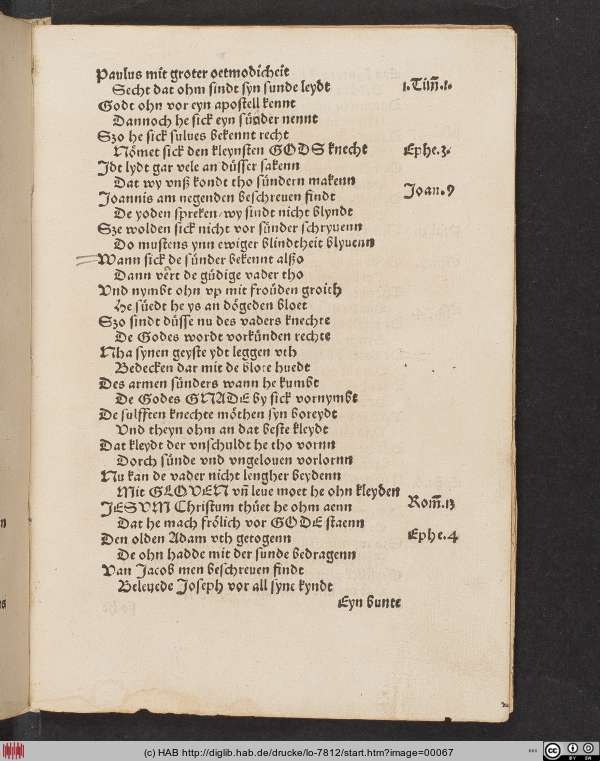 Paulus mit groter oetmodicheit
Secht dat ohm sindt syn sunde leydt
1. Tim̄. 1.
Godt ohn vor eyn apostell kennt
Dannoch he sick eyn sünder nennt
Szo he sick sulues bekennt recht
Nömet sick den kleynsten GODS knecht
Ephe. 3.
Jdt lydt gar vele an düsser sakenn
Dat wy vnß kondt tho sündern makenn
Joannis am negenden beschreuen findt
Joan. 9
De yoden spreken/ wy sindt nicht blyndt
Sze wolden sick nicht vor sünder schryuenn
Do mustens ynn ewiger blindtheit blyuenn
Wann sick de sünder bekennt alßo
Dann vert de güdige vader tho
Vnd nymbt ohn vp mit froüden groith
He süedt he ys an dögeden bloet
Szo sindt düsse nu des vaders knechte
De Godes wordt vorkünden rechte
Nha synen geyste ydt leggen vth
Bedecken dar mit de blote huedt
Des armen sünders wann he kumbt
De Godes GNADE by sick vornymbt
De sulfften knechte möthen syn boreydt
Vnd theyn ohm an dat beste kleydt
Dat kleydt der vnschuldt he tho vornn
Dorch sünde vnd vngelouen vorlornn
Nu kan de vader nicht lengher beydenn
Mit GLOVEN vn̄ leue moet he ohn kleyden
JESVM Christum thüet he ohm aenn
Rom̄. 13
Dat he mach frölich vor GODE staenn
Den olden Adam vth getogenn
Ephe. 4
De ohn hadde mit der sunde bedragenn
Van Jacob men beschreuen findt
Beleuede Joseph vor all syne kyndt
Eyn bunte
(c) HAB http://diglib.hab.de/drucke/lo-7812/start.htm?image=00067